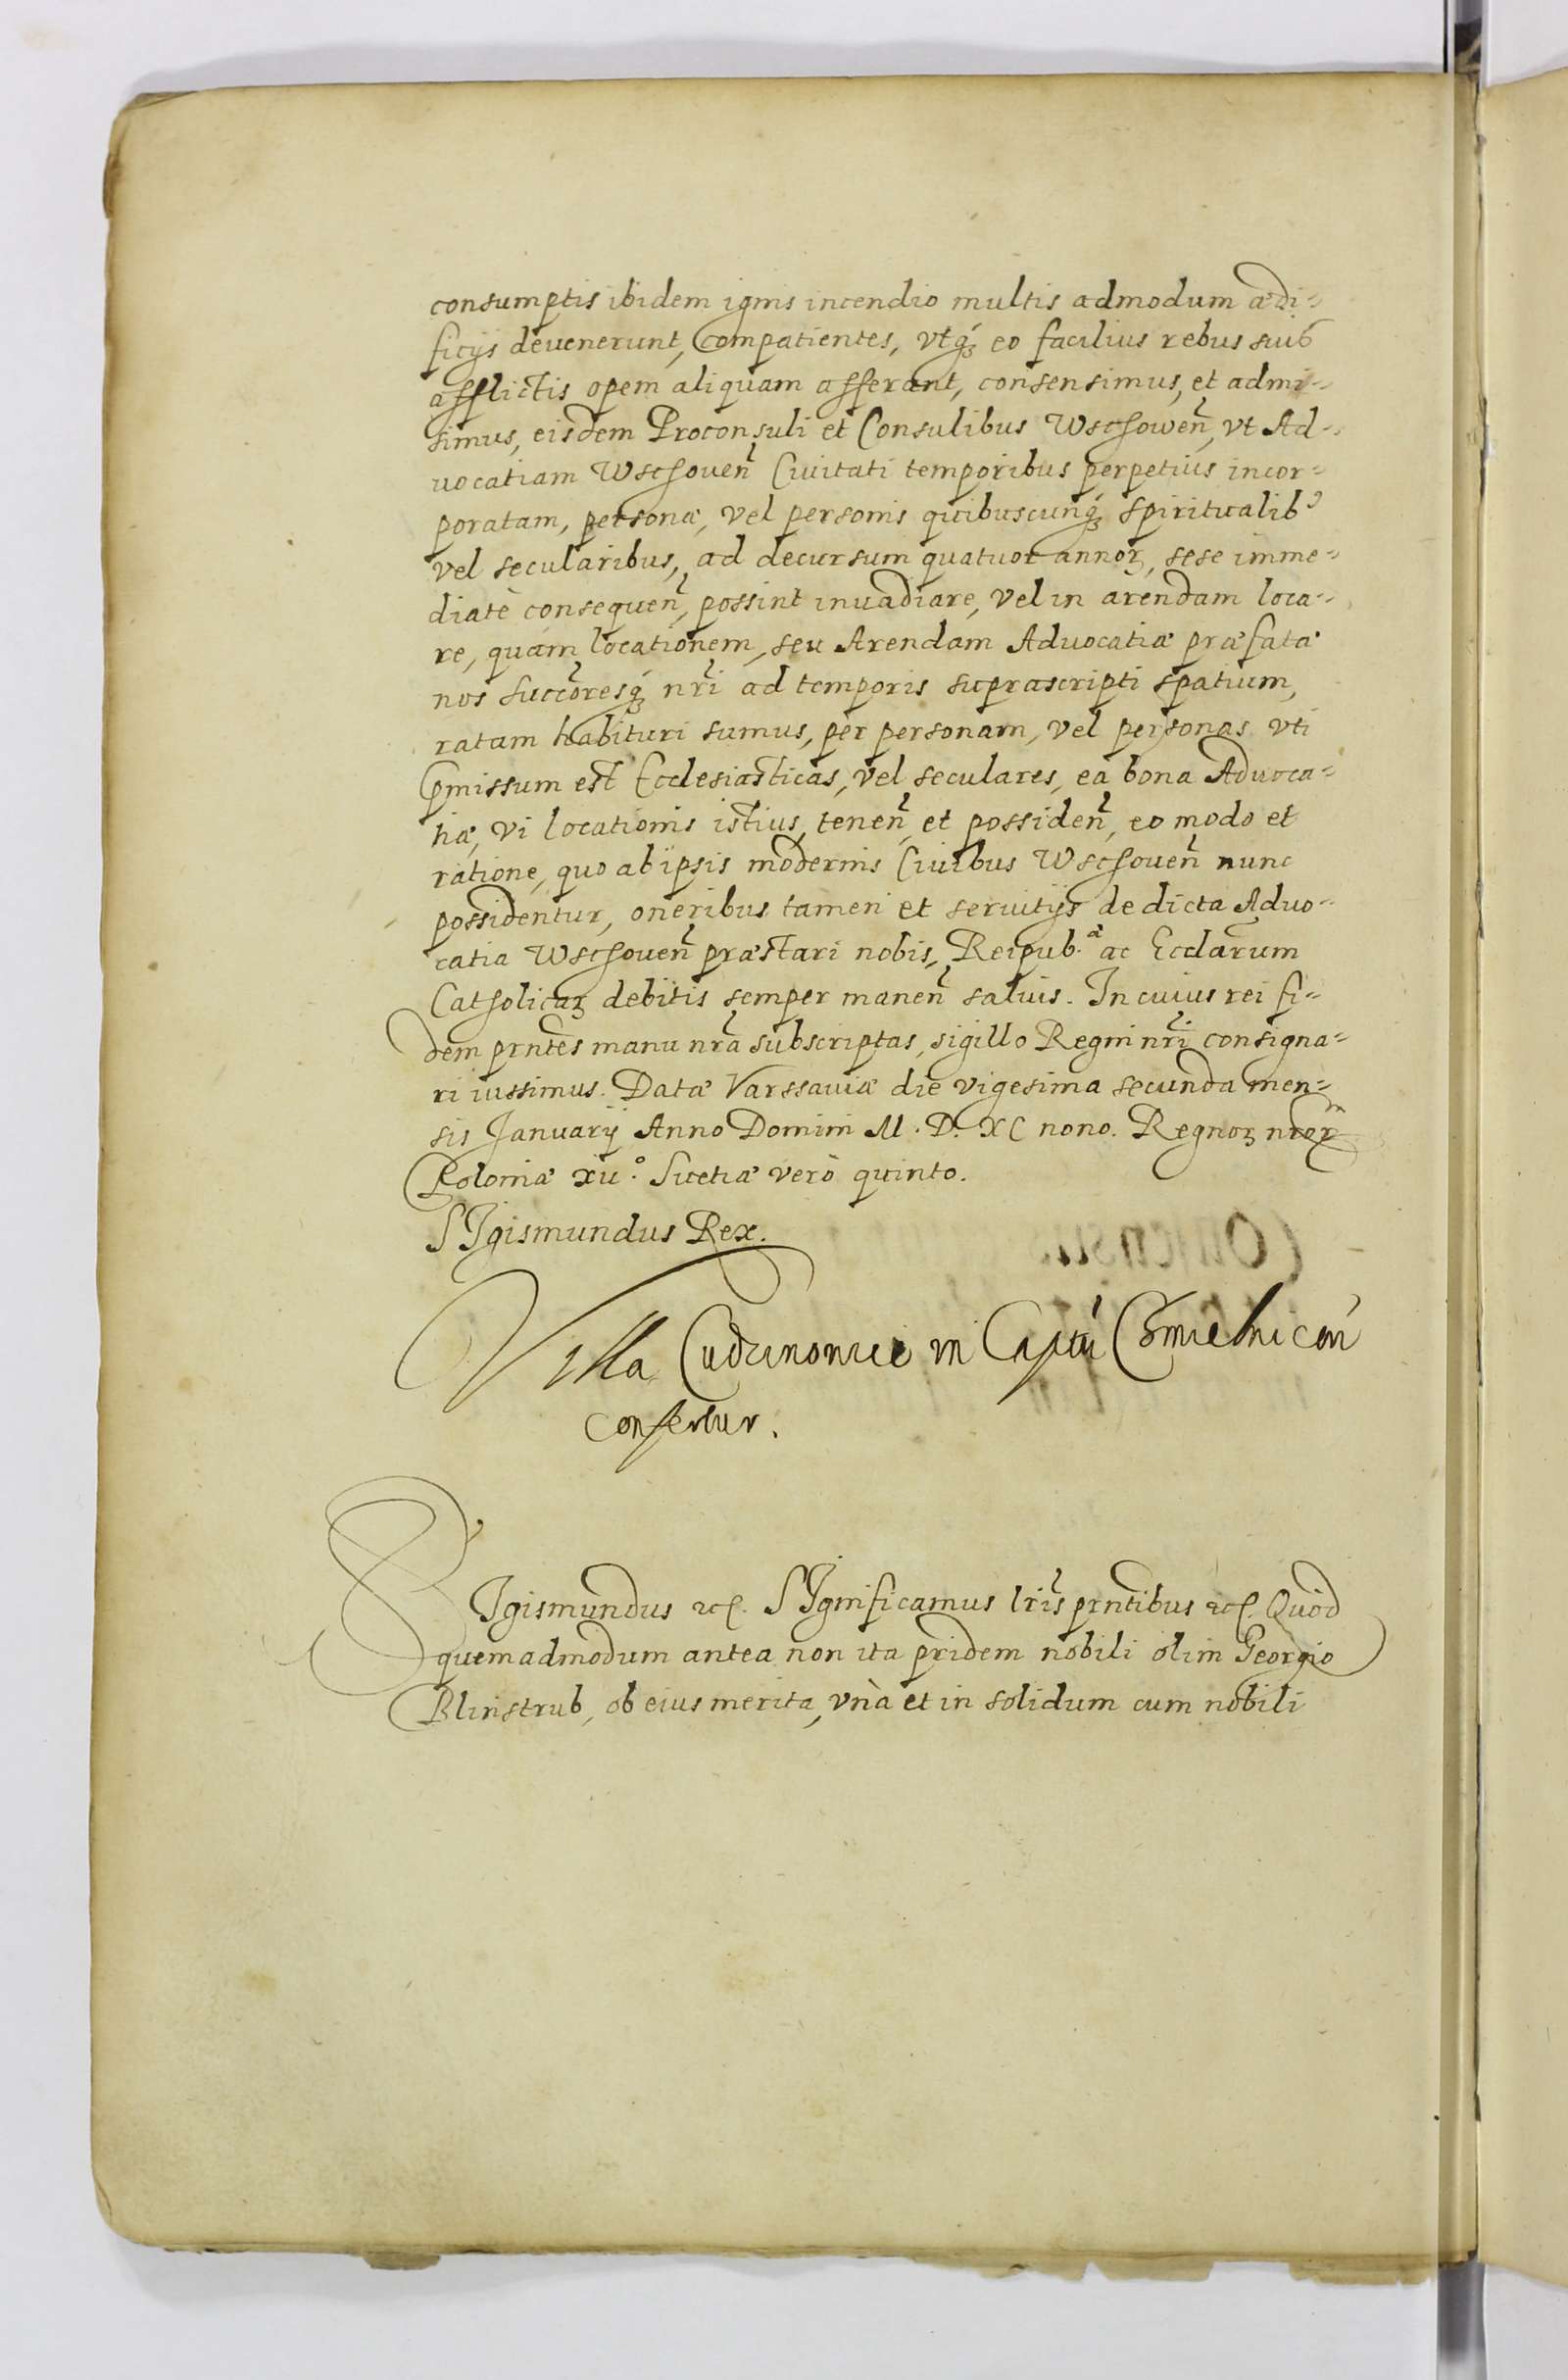 consumptis ibidem ignis incendio multis admodum ædi-
ficijs deuenerunt, Compatientes, vtq₃ eo facilius rebus suis
afflictis opem aliquam afferant, consensimus, et admi-
simus, eisdem Proconsuli et Consulibus Wschowen̄, vt Ad-
uocatiam Wschouen̄ Ciuitati temporibus perpetuis incor-
poratam, personæ, vel personis quibuscunq₃ spiritualib⁹
vel secularibus, ad decursum quatuor annoꝝ, sese imme-
diatè consequen̄, possint inuadiare, vel in arendam loca-
re, quam locationem, seu Arendam Aduocatiæ præfatæ
nos succ̄oresq₃ nr̄i ad temporis suprascripti spatium,
ratam habituri sumus, per personam, vel personas vti
ꝓmissum est Ecclesiasticas, vel seculares, ea bona Aduoca-
tiæ, vi locationis istius, tenen̄, et possiden̄, eo modo et
ratione, quo ab ipsis modernis Ciuibus Wschouen̄ nunc
possidentur, oneribus tamen et seruitijs de dicta Aduo-
catia Wschouen̄ præstari nobis, Reipub.ᵃ ac Eccl̄arum
Catholicaꝝ debitis semper manen̄ saluis. In cuius rei fi-
dem prn̄tes manu nr̄a subscriptas, sigillo Regni nr̄i consigna-
ri iussimus. Datæ Varssauiæ die vigesima secunda men-
sis Januarij Anno Domini M. D. XC nono. Regnoꝝ nr̄oꝝ
Poloniæ xii° Suetiæ verò quinto.
SIgismundus Rex.
Villa Cudzinowcze in Captū Chmielnicen̄
confertur.
SIgismundus etc. SIgnificamus lr̄is prn̄tibus etc. Quod
quemadmodum antea non ita pridem nobili olim Georgio
Blinstrub, ob eius merita, vnà et in solidum cum nobili